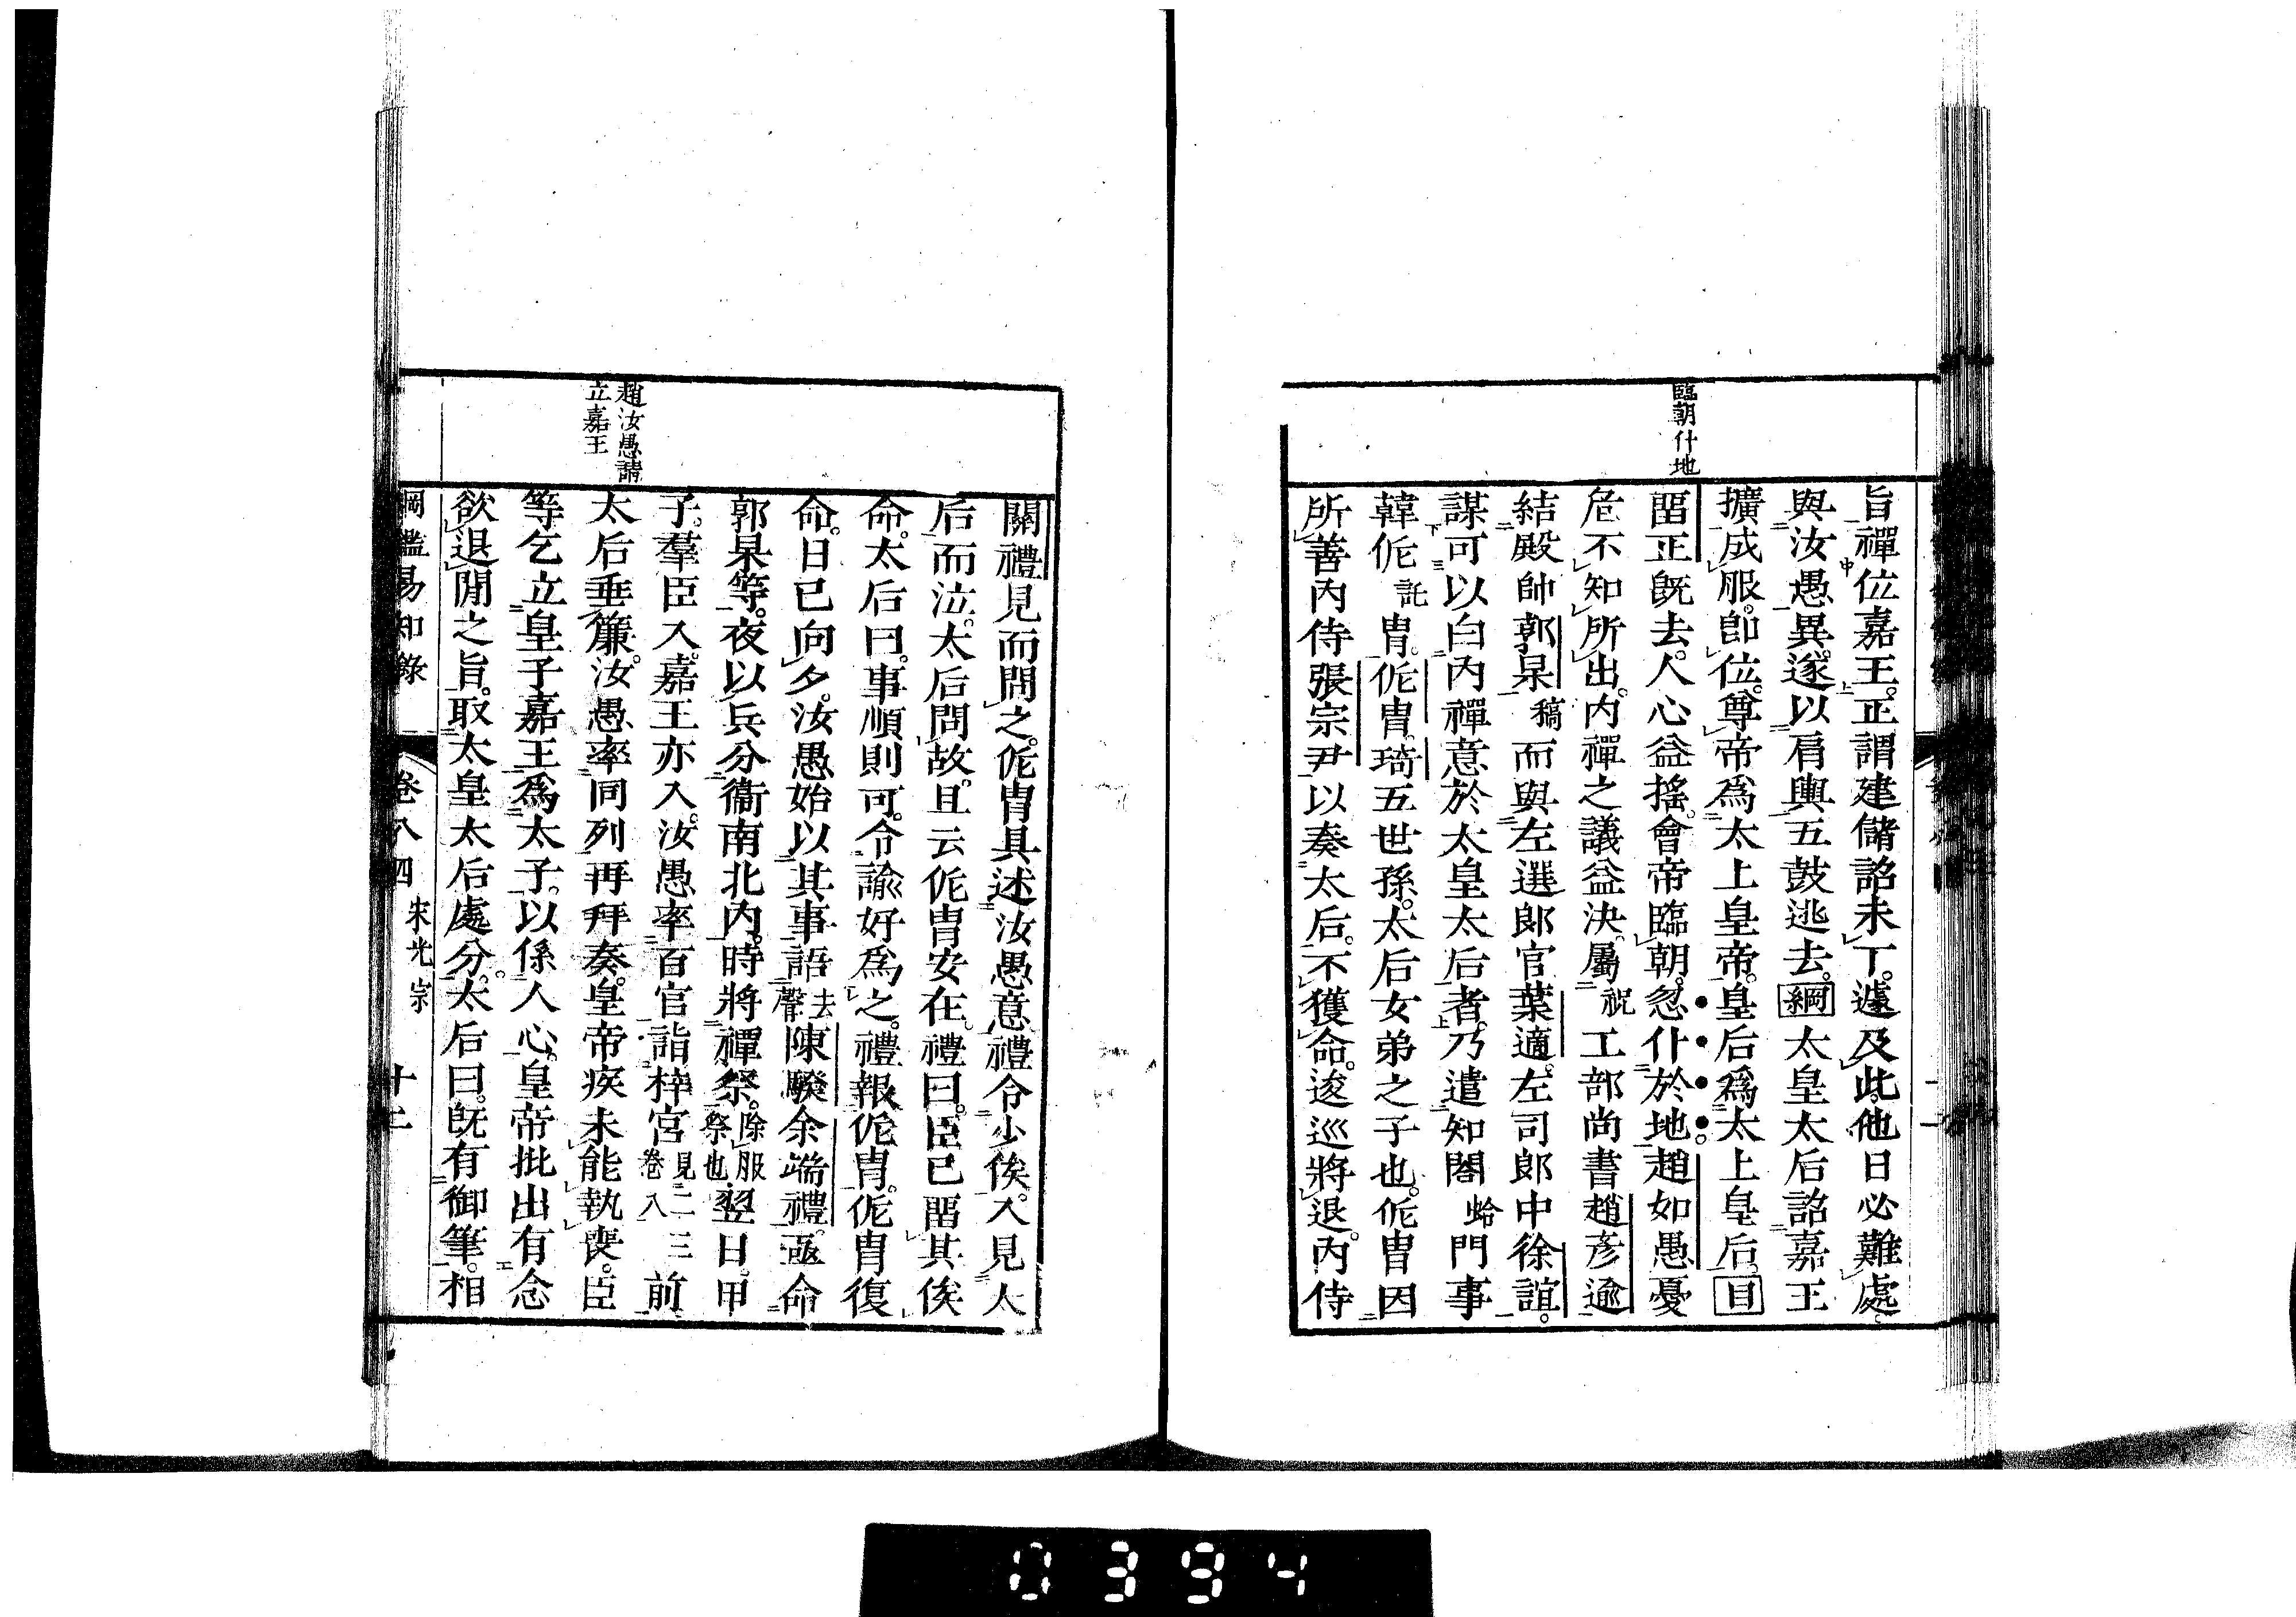 臨朝什地
旨禪位嘉王。正謂建儲詔未丁。遽及此。他日必難處。
與汝愚異。遂以肩輿五鼓逃去。綱太皇太后詔嘉王
擴成服。卽位。尊帝爲太上皇帝。皇后爲太上皇后。目
畱正旣去。人心益搖。會帝臨朝。忽什於地。趙如愚憂
危不知所出。內禪之議益決。屬祝工部尚書趙彥逾
結殿帥郭杲稿而與左選郎官葉適。左司郎中徐誼。
謀可以白內禪意於太皇太后者。乃遣知閤蛤門事
韓侂託冑。侂冑。琦五世孫。太后女弟之子也。侂冑因
所善內侍張宗尹以奏太后。不獲命。逡巡將退。內侍
趙汝愚請
立嘉王
關禮見而問之。侂冑具述汝愚意。禮令少俟。入見太
后而泣。太后問故。且云侂冑安在。禮曰。臣已畱其俟
命。太后曰。事順則可。令諭好爲之。禮報侂冑。侂冑復
命。日已向夕。汝愚始以其事語去聲陳騤余端禮。亟命
郭杲等。夜以兵分衞南北內。時將禫祭。除服祭也翌日。甲
子。羣臣入。嘉王亦入。汝愚率百官詣梓宮見二三卷八前
太后垂簾。汝愚率同列再拜奏。皇帝疾未能執喪。臣
等乞立皇子嘉王爲太子。以係人心。皇帝批出有念
欲退閒之旨。取太皇太后處分。太后曰。旣有御筆。相
綱鑑易知錄 卷八四 宋光宗 十二
0394